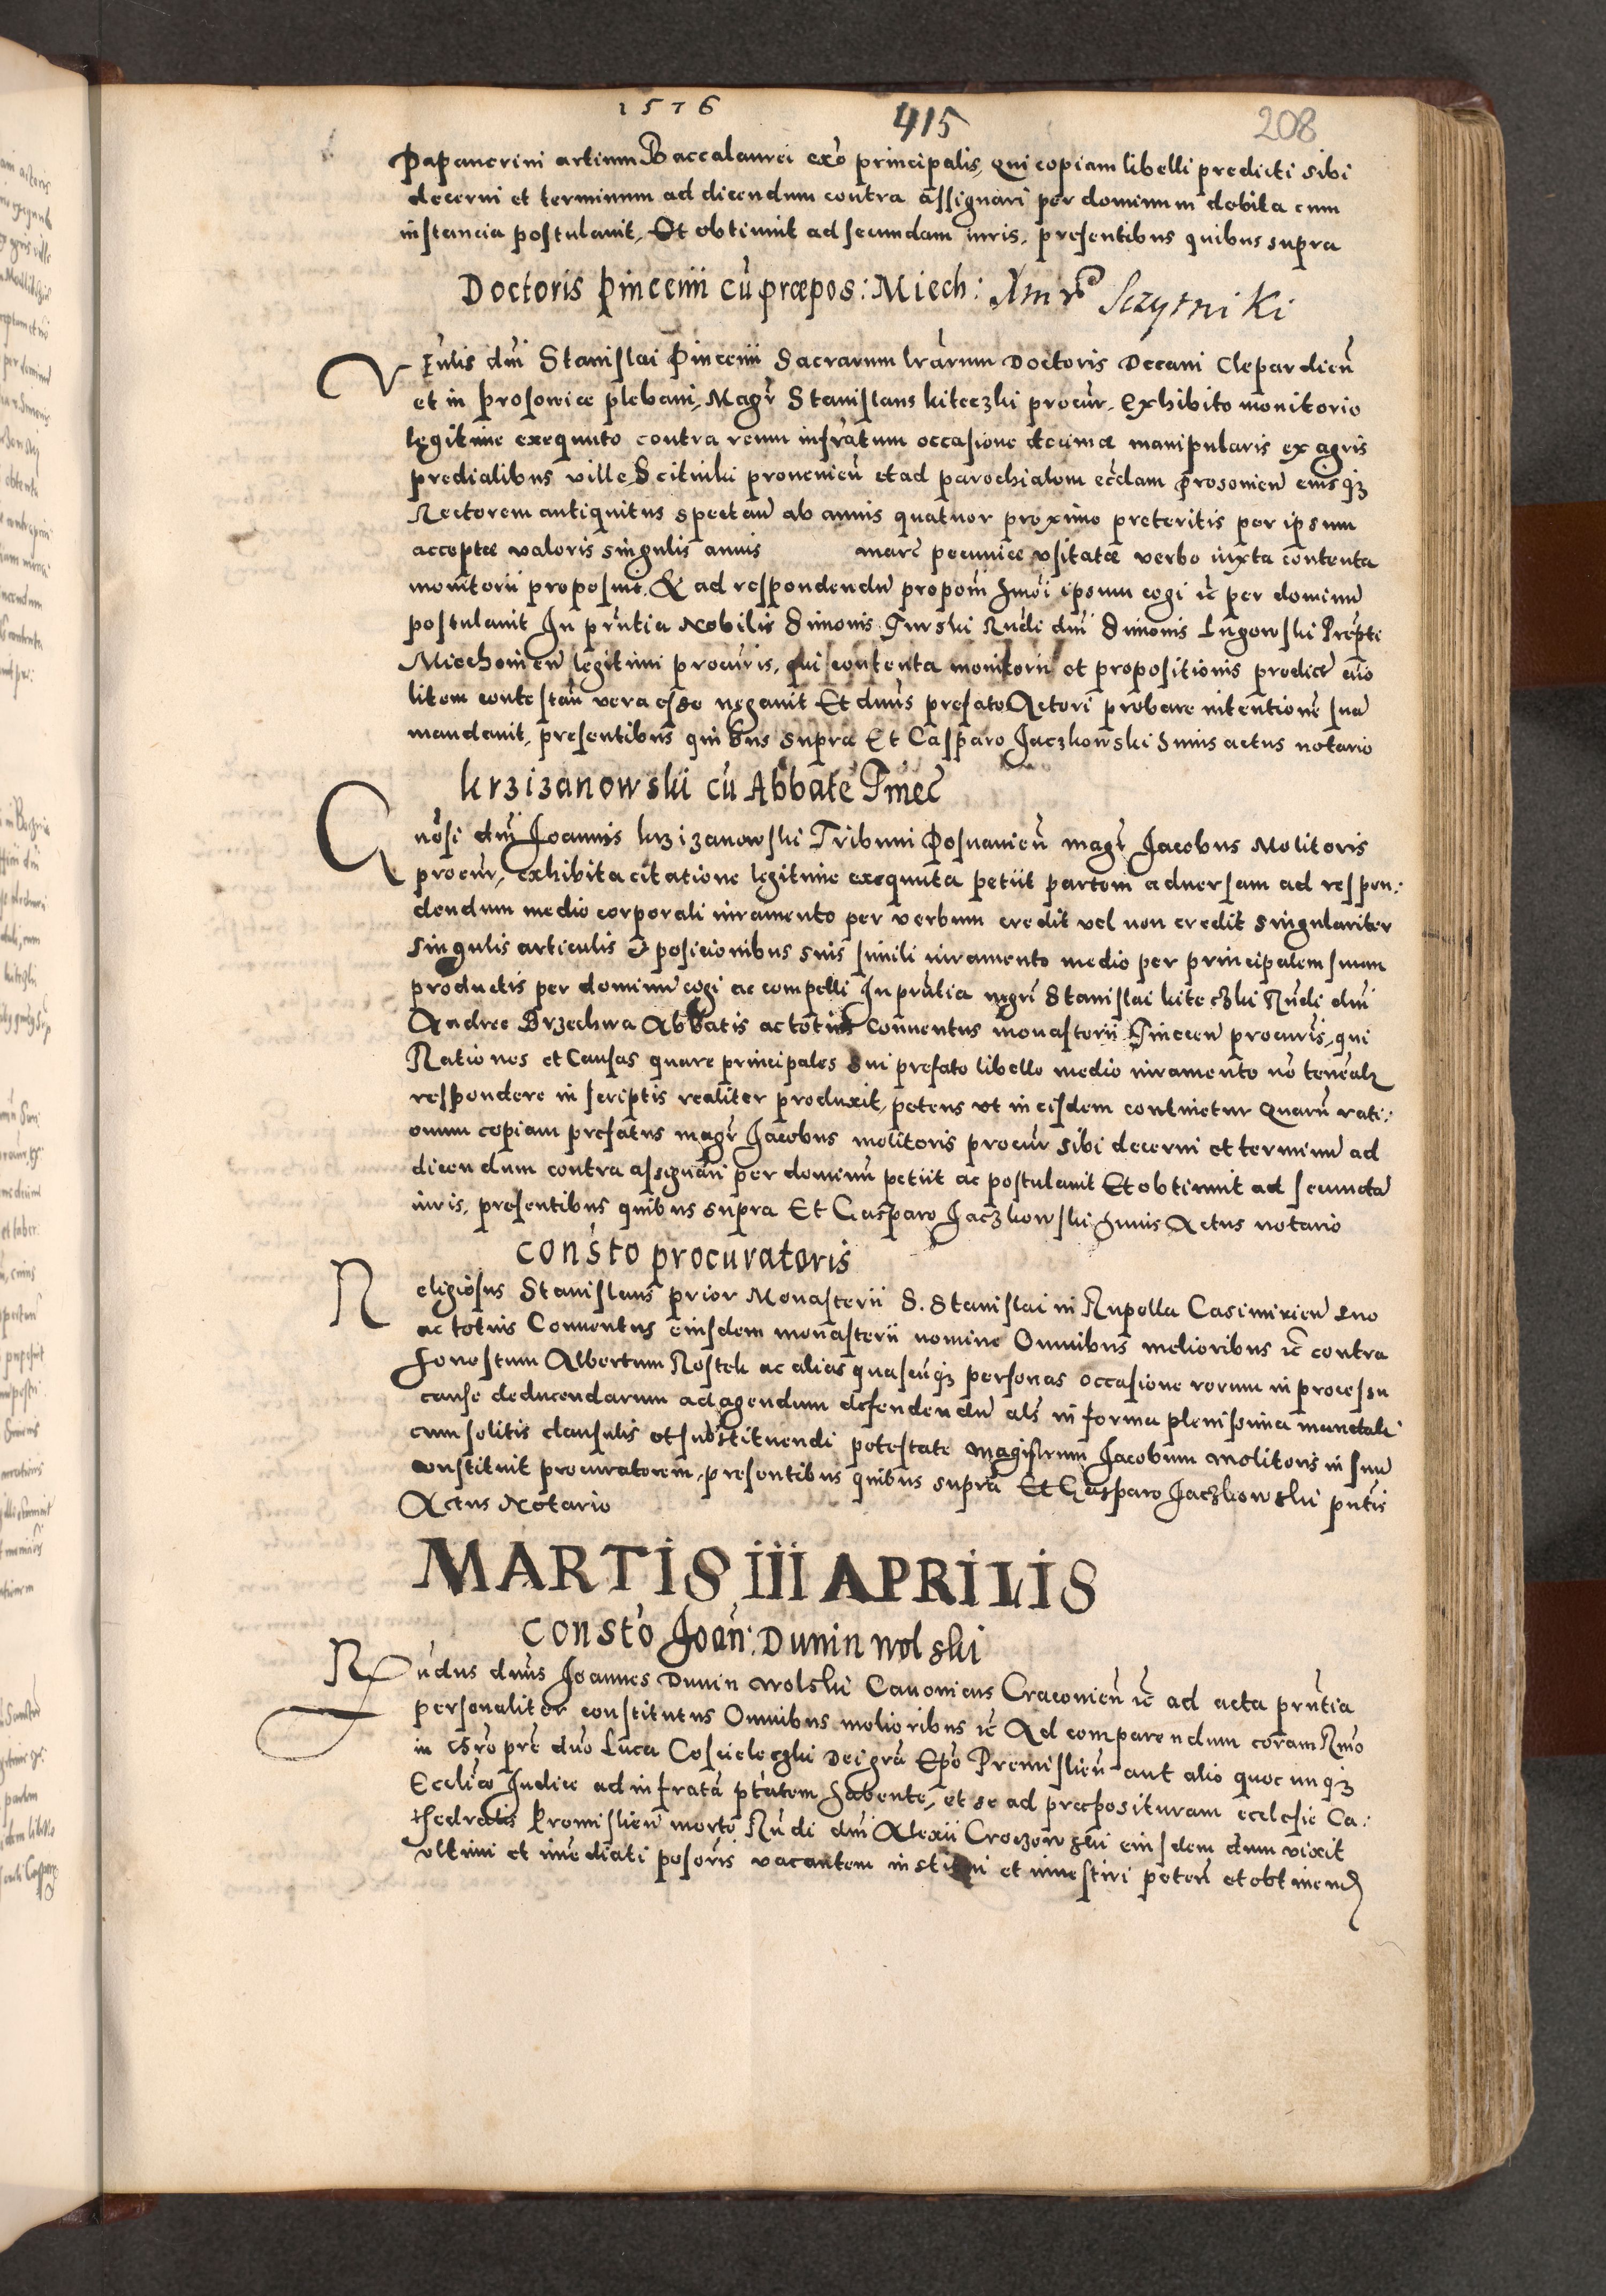 1576
415
208
Papaucrini artium Baccalaurei exo principalis, qui copiam libelli predicti sibi
decerni et terminum ad dicendum contra assignari per dominum debita cum
instancia postulauit, Et obtinuit ad secundam iuris, presentibus quibus supra
Doctoris Pincerni cū præpos: Miech:
Sczytniki
Vēnlis dni Stanislai Pincerni Sacrarum lrarum Doctoris Decani Clepardien
et in Prosowice plebani, Magr Stanislaus kiteczki procur, exhibito monitorio
legitime exequuto contra reum infratum occasione decimæ manipularis ex agris
predialibus ville Scitniki prouenien et ad parochialem eccłam Prosouien eiusq3
Rectorem antiquitus spectan ab annis quatuor proximo preteritis per ipsum
acceptæ valoris singulis annis marc pecuniæ vsitatæ verbo iuxta contenta
monitorii proposuit. & ad respondendū propom hmoi ipsum cogi ic per dominū
postulauit In prntia Nobilis Simonis Gurski Rndi dni Simonis Lugowski Prepti
Miechouien legitimi procuris, qui contenta monitorii et propositionis predicte aio
litem contestan vera esse negauit Et dnus prefato Actori probare intentionē suā
mandauit, presentibus quibus supra Et Casparo Jaczkowski huius actus notario
krzizanowski cū Abbate Tinec
Gnosi dni Joannis krzizanowski Tribuni Posnanien magr Jacobus Molitoris
procur, exhibita citatione legitime exequuta petiit partem aduersam ad respon:
dendum medio corporali iuramento per verbum credit vel non credit singulariter
singulis articulis & posicionibus suis simili iuramento medio per principalem suum
productis per dominū cogi ac compelli In prntia mgri Stanislai kiteczki Rndi dni
Andree Brzechwa Abbatis ac totius Conuentus monasterii Tinecen procuris, qui
Rationes et Causas quare principales sui prefato libello medio iuramento nō teneatr
respondere in scriptis realiter produxit, petens vt in eisdem continetur Quarū rati:
onum copiam prefatus magr Jacobus molitoris procur sibi decerni et terminū ad
dicendum contra assignari per dominū petiit ac postulauit Et obtinuit ad secundā
iuris, presentibus quibus supra Et Casparo Jaczkowski huius Actus notario
Consto procuratoris
Religiosus Stanislaus prior Monasterii S. Stanislai in Rupella Casimirien suo
ac totius Conuentus eiusdem monasterii nomine Omnibus melioribus ic contra
honestum Albertum Rostek ac alias quascunq3 personas occasione rerum in processu
cause deducendarum ad agendum defendendū als in forma plenissima mandati
cum solitis clausulis et substituendi potestate magistrum Jacobum molitoris in suū
constituit procuratorem, presentibus quibus supra Et Casparo Jaczkowski pntis
Actus Notario
MARTIS III APRILIS
Consto Joan: Dunin Wolski
Rndus dnus Joannes Dunin Wolski Canonicus Cracouien ic ad acta prntia
personaliter constitutus Omnibus melioribus ic Ad comparendum coram Rmo
in Chro pre dno Luca Coscieleczki Dei gra Epo Premislien aut alio quocunq3
Ecclico Judice ad infrata ptatem habente, et se ad præposituram ecclesie Ca:
thedralis Premislien morte Rndi dni Alexii Croczowski eiusdem dum vixit
vltimi et imediati possoris vacantem institui et inuestiri peten et obtinend